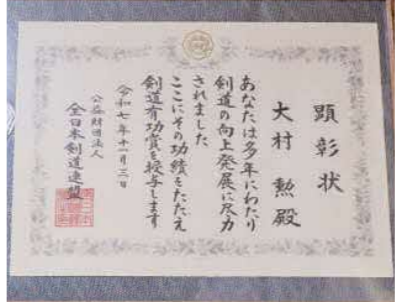 顕彰状
大村 勲 殿
あなたは多年にわたり
剣道の向上発展に尽力
されました
ここにその功績をたたえ
剣道有功賞を授与します
令和七年十一月三日
公益財団法人
全日本剣道連盟